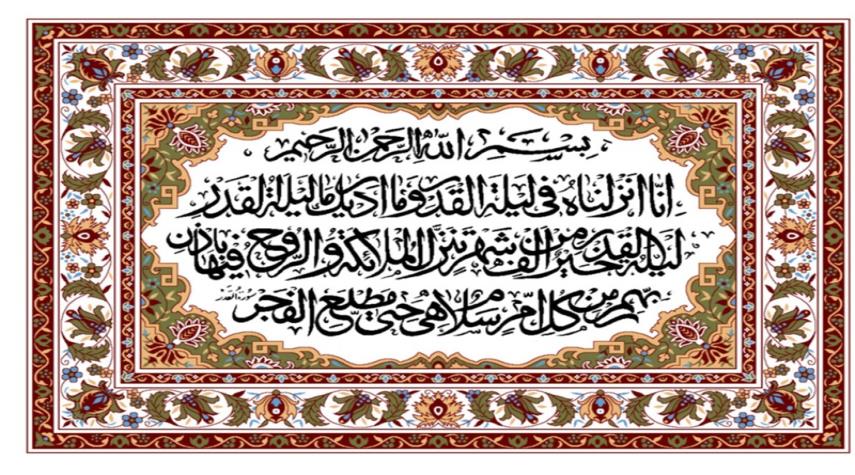 بِسْمِ اللهِ الرَّحْمٰنِ الرَّحِيمِ
اِنَّا اَنْزَلْنَاهُ فِي لَيْلَةِ الْقَدْرِ وَمَا اَدْرٰيكَ مَا لَيْلَةُ الْقَدْرِ
لَيْلَةُ الْقَدْرِ خَيْرٌ مِنْ اَلْفِ شَهْرٍ تَنَزَّلُ الْمَلَائِكَةُ وَالرُّوحُ فِيهَا بِاِذْنِ
رَبِّهِمْ مِنْ كُلِّ اَمْرٍ سَلَامٌ هِيَ حَتّٰى مَطْلَعِ الْفَجْرِ
سورة القدر